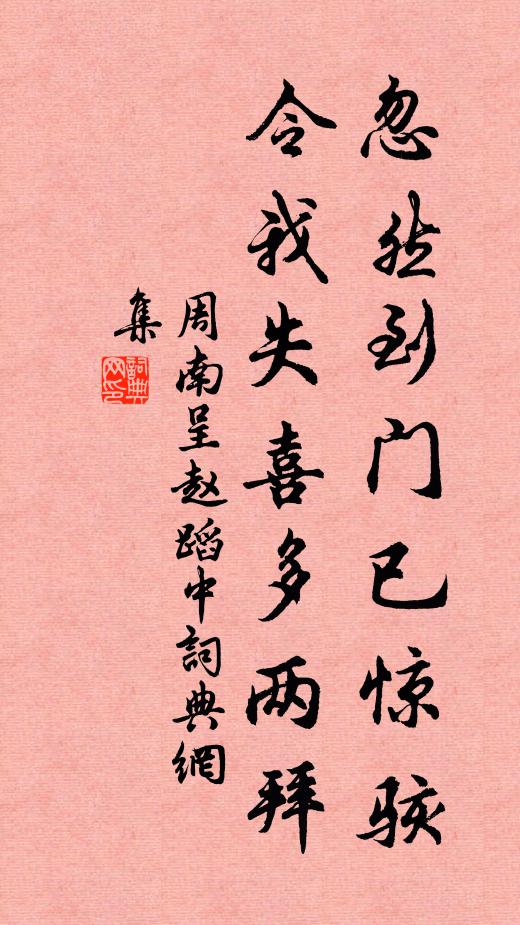 忽然到门已惊骇
令我失喜多两拜
周南呈赵蹈中詞典網
集
詞典
网印